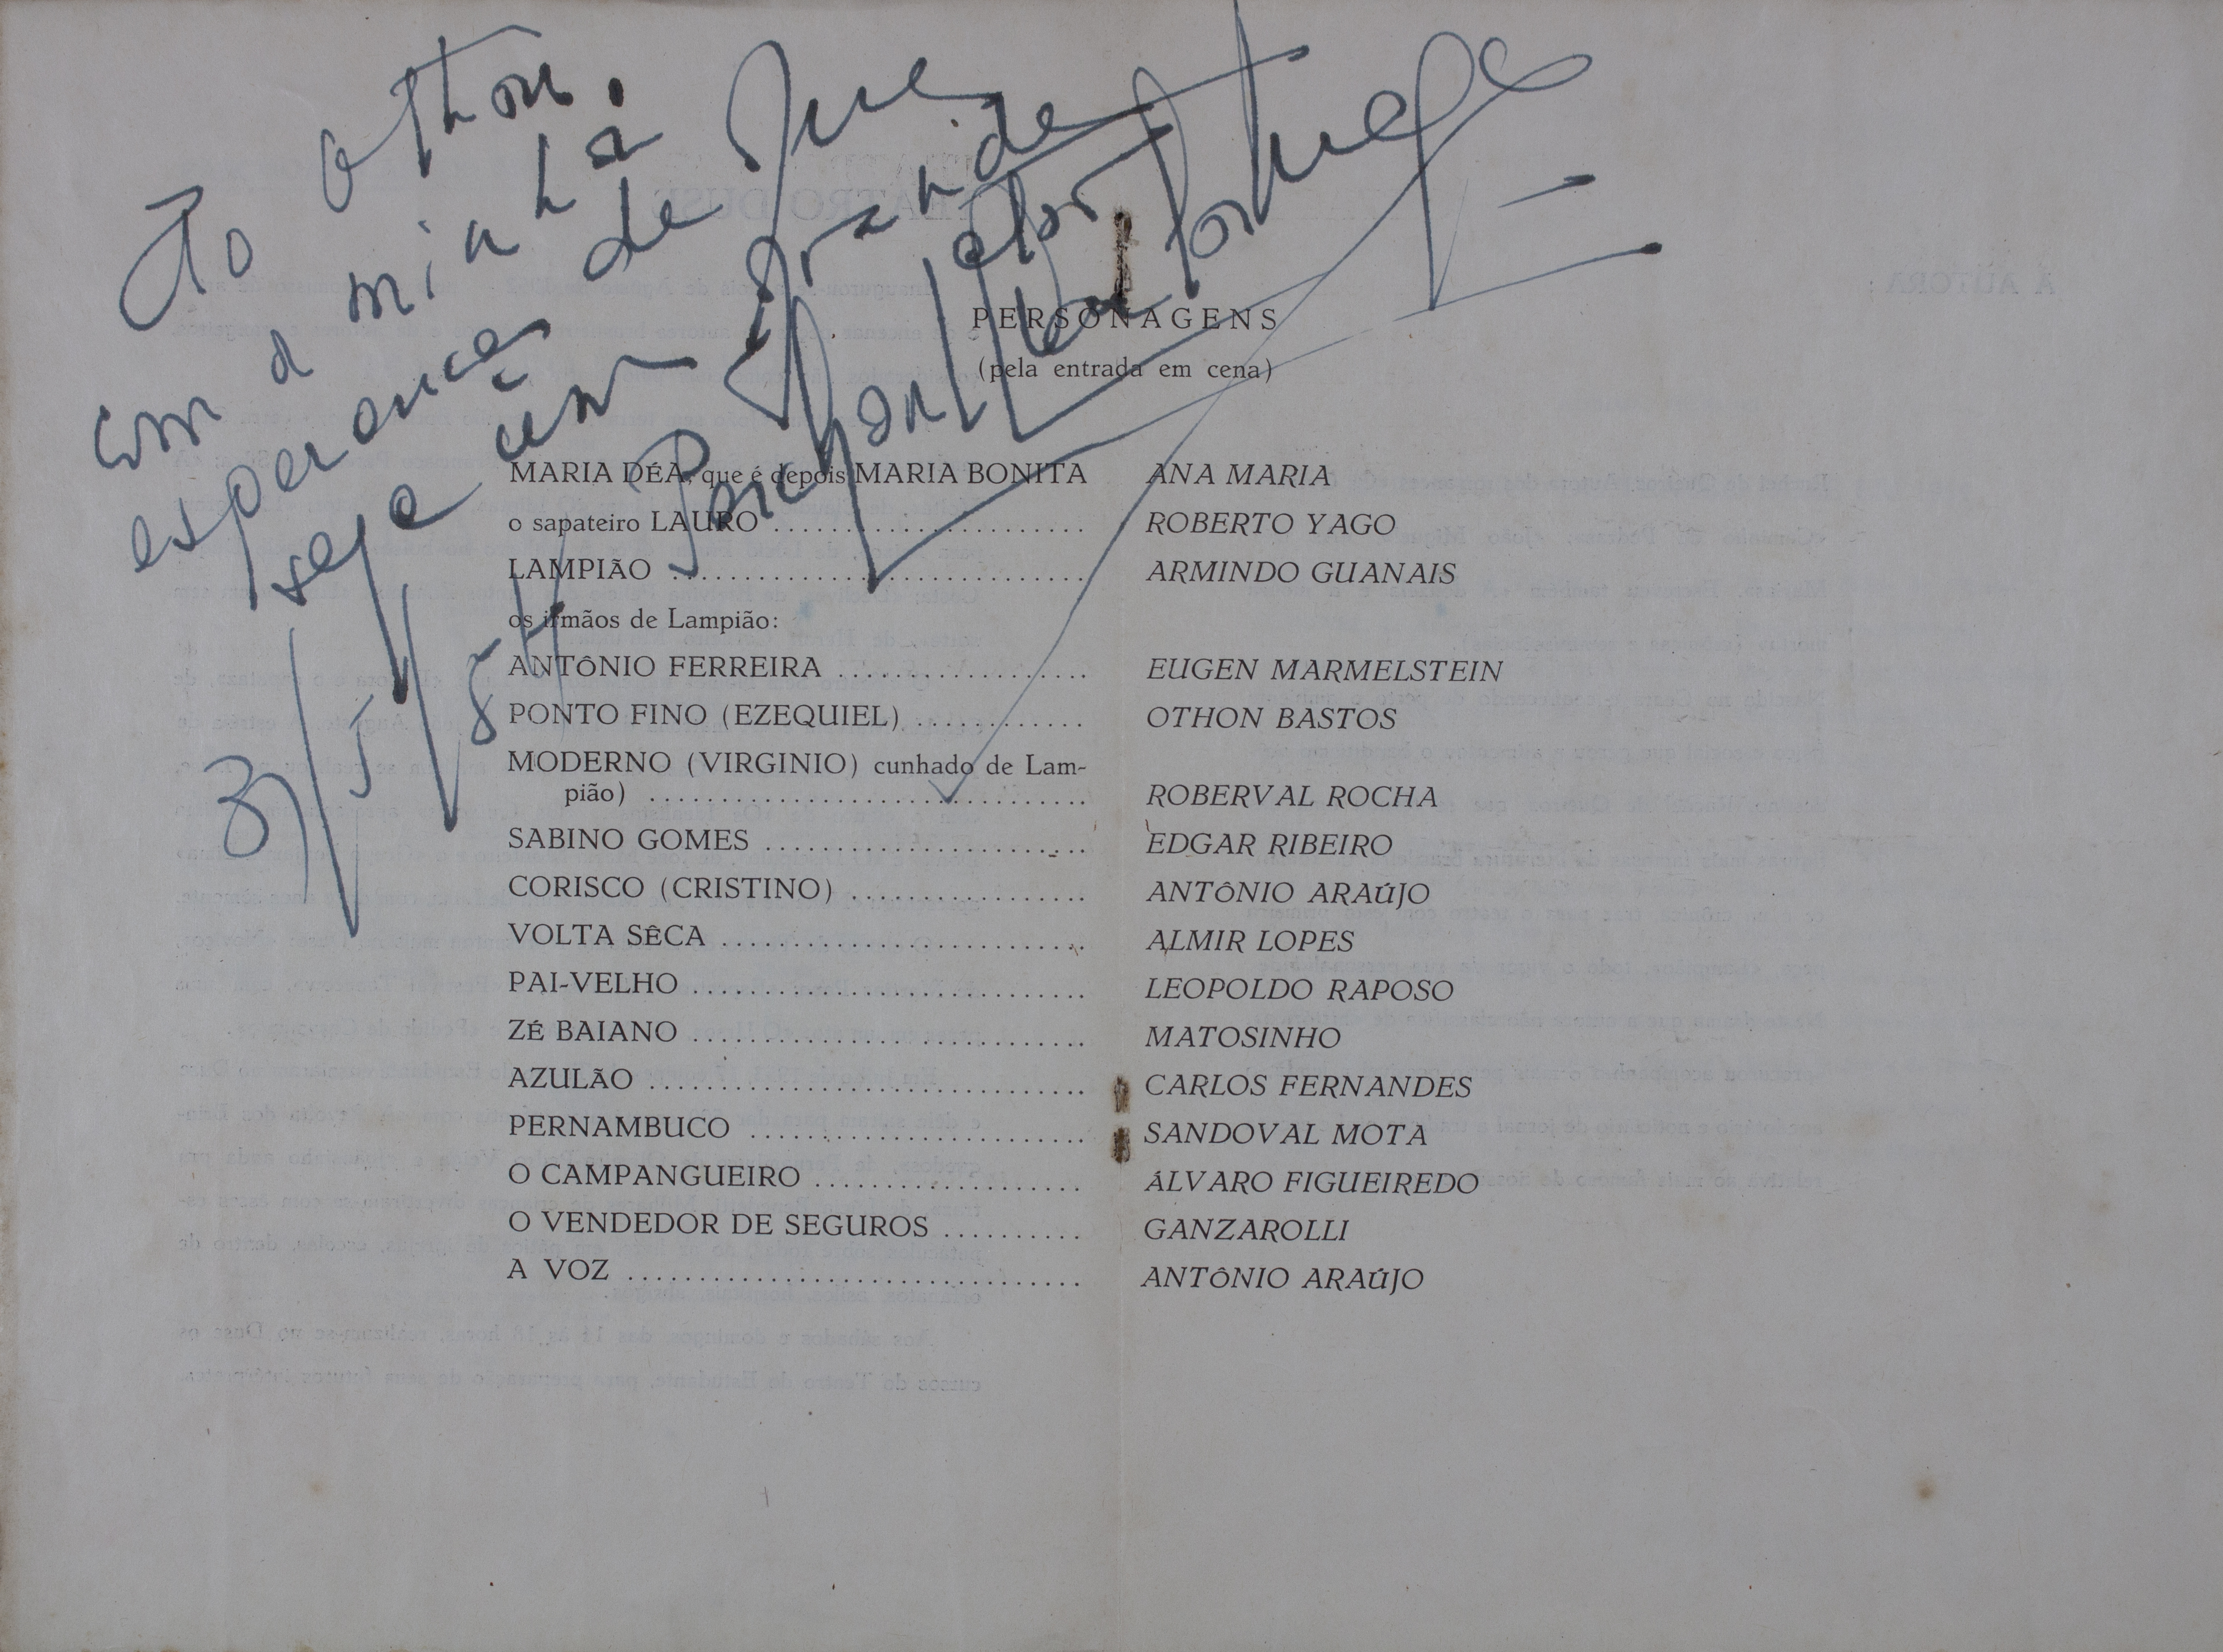 Ao Othon.
com a minha
esperança de que
seja um grande
ator
Paschoal
3/5/54
PERSONAGENS
(pela entrada em cena)
MARIA DÉA, que é depois MARIA BONITA ANA MARIA
o sapateiro LAURO ...................... ROBERTO YAGO
LAMPIÃO ............................. ARMINDO GUANAIS
os irmãos de Lampião:
ANTÔNIO FERREIRA .................. EUGEN MARMELSTEIN
PONTO FINO (EZEQUIEL) ............ OTHON BASTOS
MODERNO (VIRGINIO) cunhado de Lam-
pião) ............................... ROBERVAL ROCHA
SABINO GOMES ....................... EDGAR RIBEIRO
CORISCO (CRISTINO) ................. ANTÔNIO ARAÚJO
VOLTA SÊCA .......................... ALMIR LOPES
PAI-VELHO ............................ LEOPOLDO RAPOSO
ZÉ BAIANO ............................ MATOSINHO
AZULÃO ............................... CARLOS FERNANDES
PERNAMBUCO ........................ SANDOVAL MOTA
O CAMPANGUEIRO ................... ÁLVARO FIGUEIREDO
O VENDEDOR DE SEGUROS .......... GANZAROLLI
A VOZ ................................ ANTÔNIO ARAÚJO